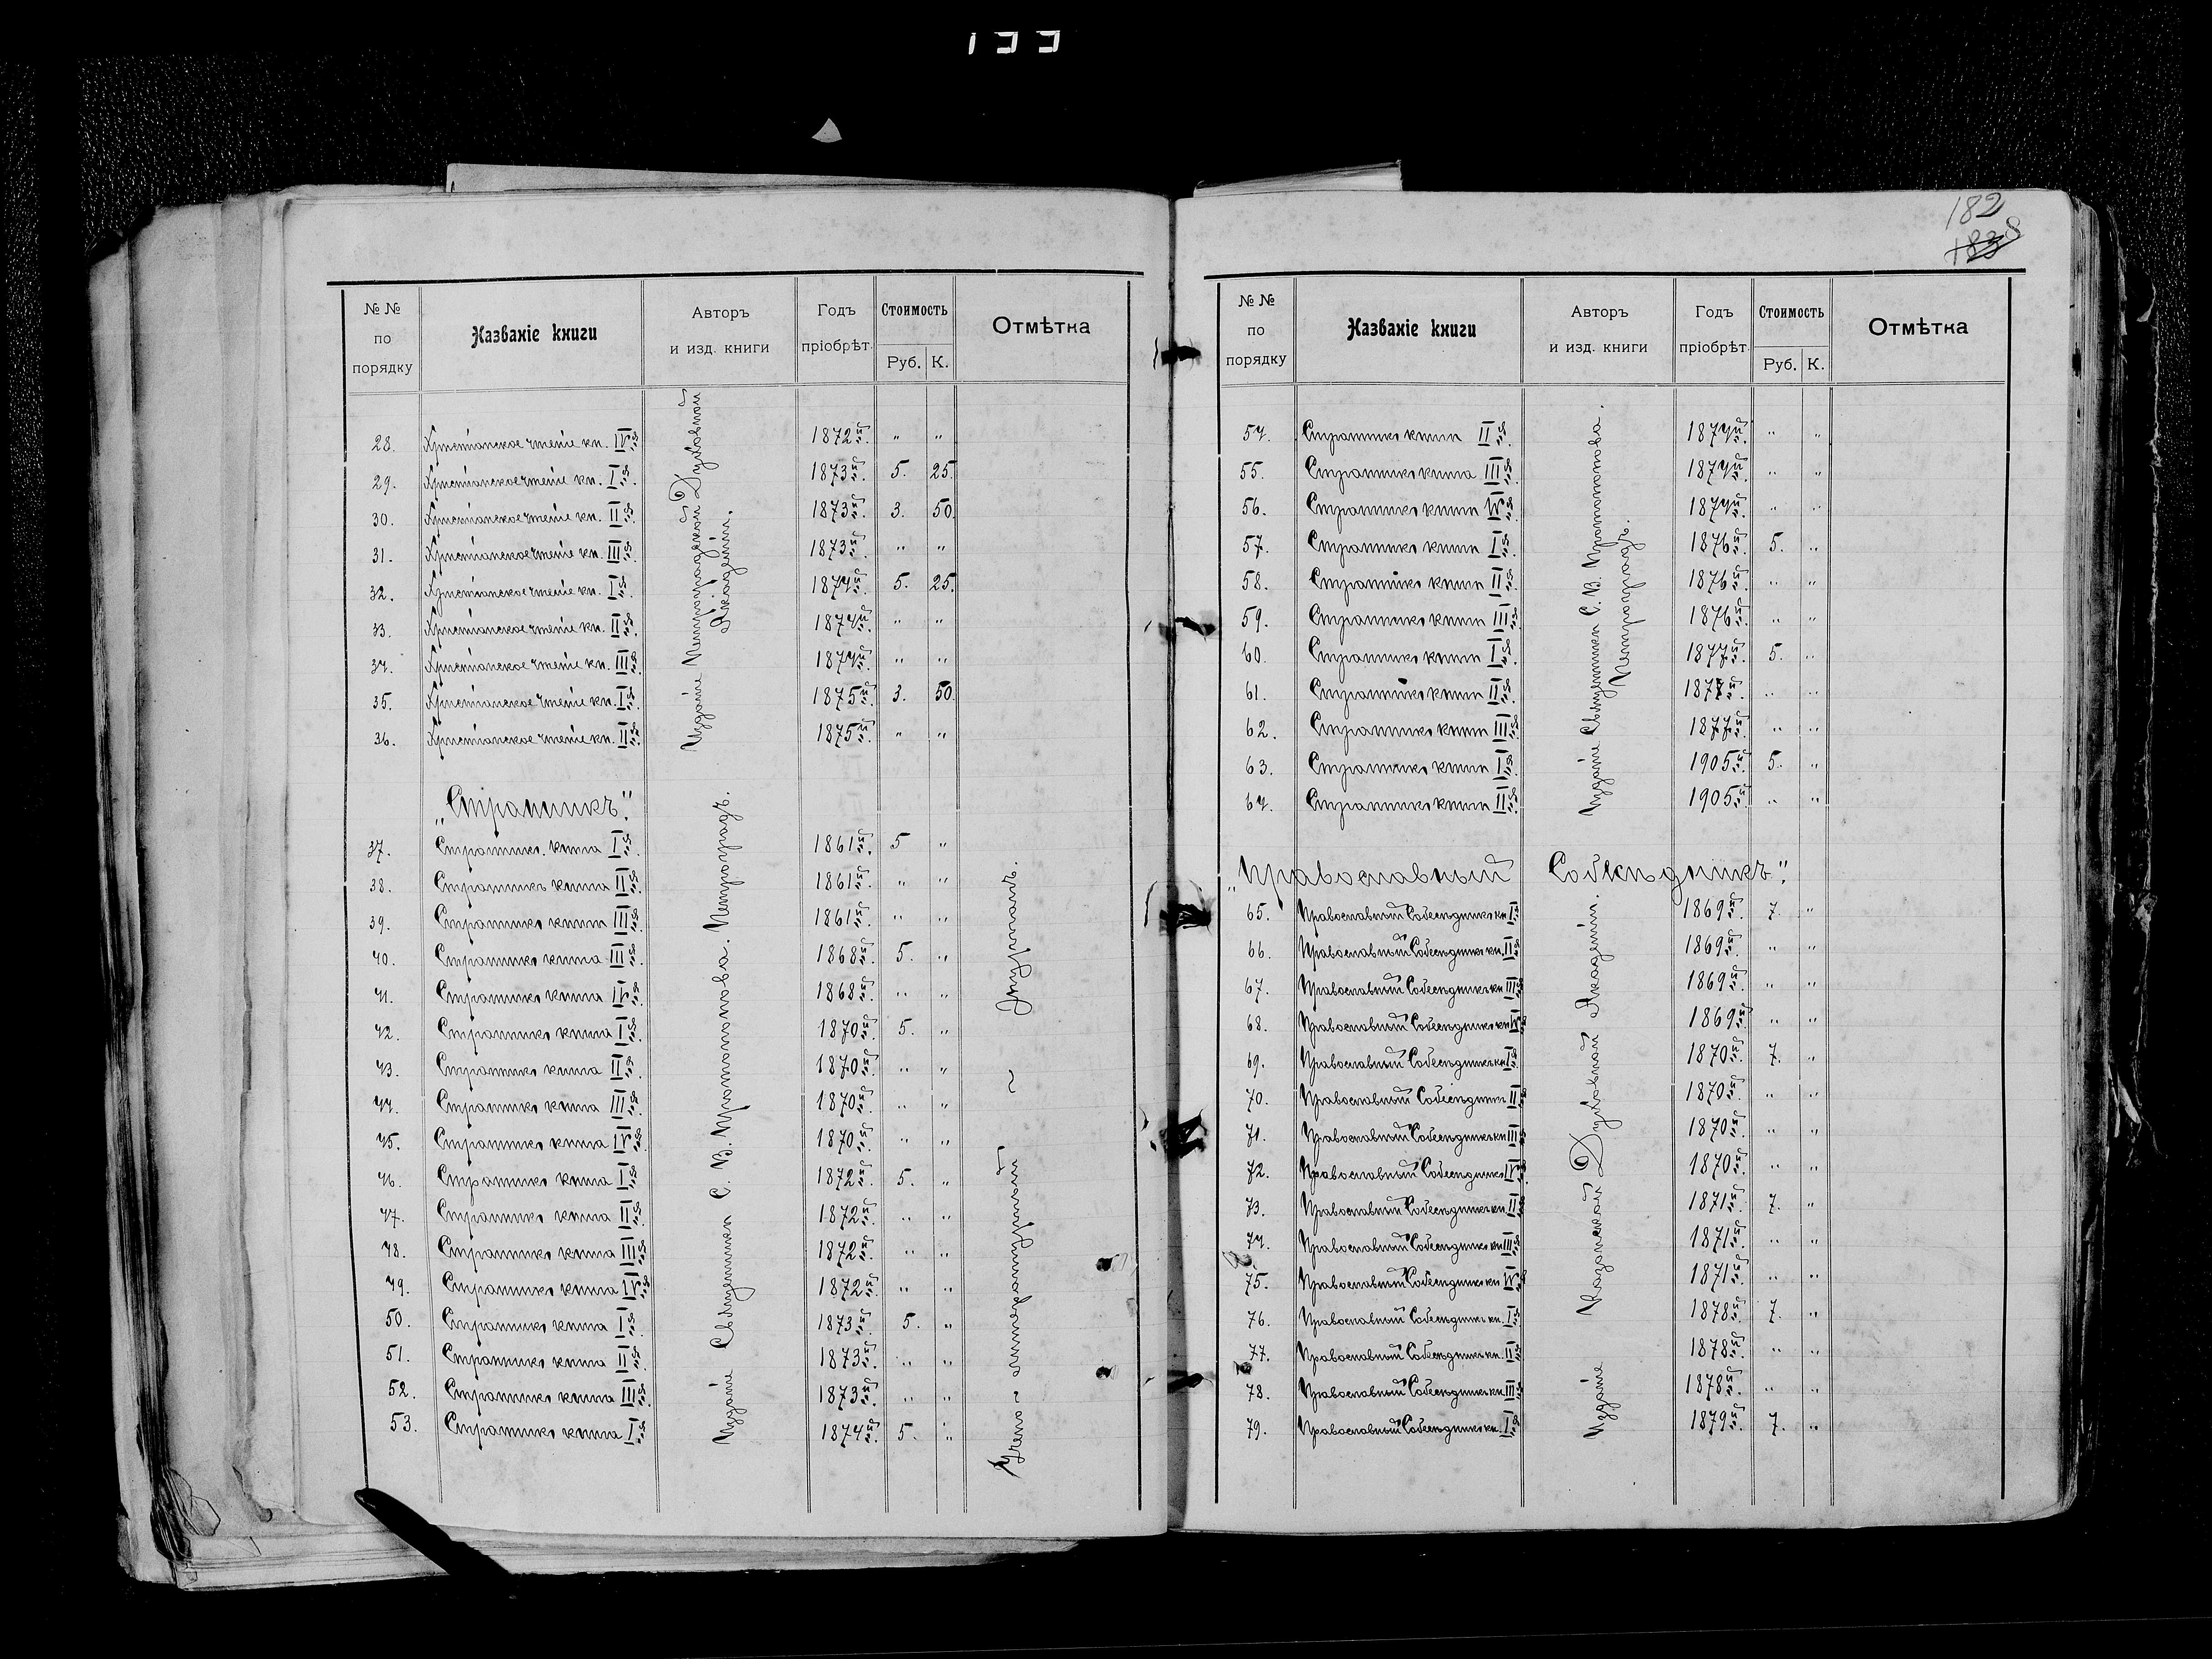 133
№ № по порядку Названіе книги Авторъ и изд. книги Годъ пріобрѣт. Стоимость Руб. К. Отмѣтка
Изданіе Петроградской Духовной Академіи.
28. Христіанское чтеніе кн. IV-я. 1872-й. " "
29. Христіанское чтеніе кн. I-я. 1873-й. 5. 25.
30. Христіанское чтеніе кн. II-я. 1873-й. 3. 50.
31. Христіанское чтеніе кн. III-я. 1873-й. " "
32. Христіанское чтеніе кн. I-я. 1874-й. 5. 25.
33. Христіанское чтеніе кн. II-я. 1874-й. " "
34. Христіанское чтеніе кн. III-я. 1874-й. " "
35. Христіанское чтеніе кн. I-я. 1875-й. 3. 50.
36. Христіанское чтеніе кн. II-я. 1875-й. " "
„Странникъ".
Изданіе Священника С. В. Протопопова. Петроградъ.
Учено-литературный ~ Журналъ.
37. Странникъ. книга I-я. 1861-й. 5 "
38. Странникъ книга II-я. 1861-й. " "
39. Странникъ книга III-я. 1861-й. " "
40. Странникъ книга III-я. 1868-й. 5. "
41. Странникъ книга IV-я. 1868-й. " "
42. Странникъ книга I-я. 1870-й. 5. "
43. Странникъ книга II-я. 1870-й. " "
44. Странникъ книга III-я. 1870-й. " "
45. Странникъ книга IV-я. 1870-й. " "
46. Странникъ книга I-я. 1872-й. 5. "
47. Странникъ книга II-я. 1872-й. " "
48. Странникъ книга III-я. 1872-й. " "
49. Странникъ книга IV-я. 1872-й. " "
50. Странникъ книга I-я. 1873-й. 5. "
51. Странникъ книга II-я. 1873-й. " "
52. Странникъ книга III-я. 1873-й. " "
53. Странникъ книга I-я. 1874-й. 5. "
182
183
№ № по порядку Названіе книги Авторъ и изд. книги Годъ пріобрѣт. Стоимость Руб. К. Отмѣтка
Изданіе Священника С. В. Протопопова. Петроградъ.
54. Странникъ книга II-я. 1874-й. " "
55. Странникъ книга III-я. 1874-й. " "
56. Странникъ книга IV-я. 1874-й. " "
57. Странникъ книга I-я. 1876-й. 5. "
58. Странникъ книга II-я. 1876-й. " "
59. Странникъ книга III-я. 1876-й. " "
60. Странникъ книга I-я. 1877-й. 5. "
61. Странникъ книга II-я. 1877-й. " "
62. Странникъ книга III-я. 1877-й. " "
63. Странникъ книга I-я. 1905-й. 5. "
64. Странникъ книга II-я. 1905-й. " "
„Православный Собесѣдникъ".
Изданіе Казанской Духовной Академіи.
65. Православный Собесѣдникъ кн. I-я 1869-й. 7. "
66. Православный Собесѣдникъ кн. II-я 1869-й. " "
67. Православный Собесѣдникъ кн. III-я 1869-й. " "
68. Православный Собесѣдникъ кн. IV-я 1869-й. " "
69. Православный Собесѣдникъ кн. I-я 1870-й. 7. "
70. Православный Собесѣдникъ II-я 1870-й. " "
71. Православный Собесѣдникъ кн. III-я 1870-й. " "
72. Православный Собесѣдникъ IV-я 1870-й. " "
73. Православный Собесѣдникъ кн. II-я 1871-й. 7. "
74. Православный Собесѣдникъ кн. III-я 1871-й. " "
75. Православный Собесѣдникъ кн. IV-я 1871-й. " "
76. Православный Собесѣдникъ кн. I-я 1878-й. 7. "
77. Православный Собесѣдникъ кн. II-я 1878-й. " "
78. Православный Собесѣдникъ кн. III-я 1878-й. " "
79. Православный Собесѣдникъ кн. I-я 1879-й. 7. "